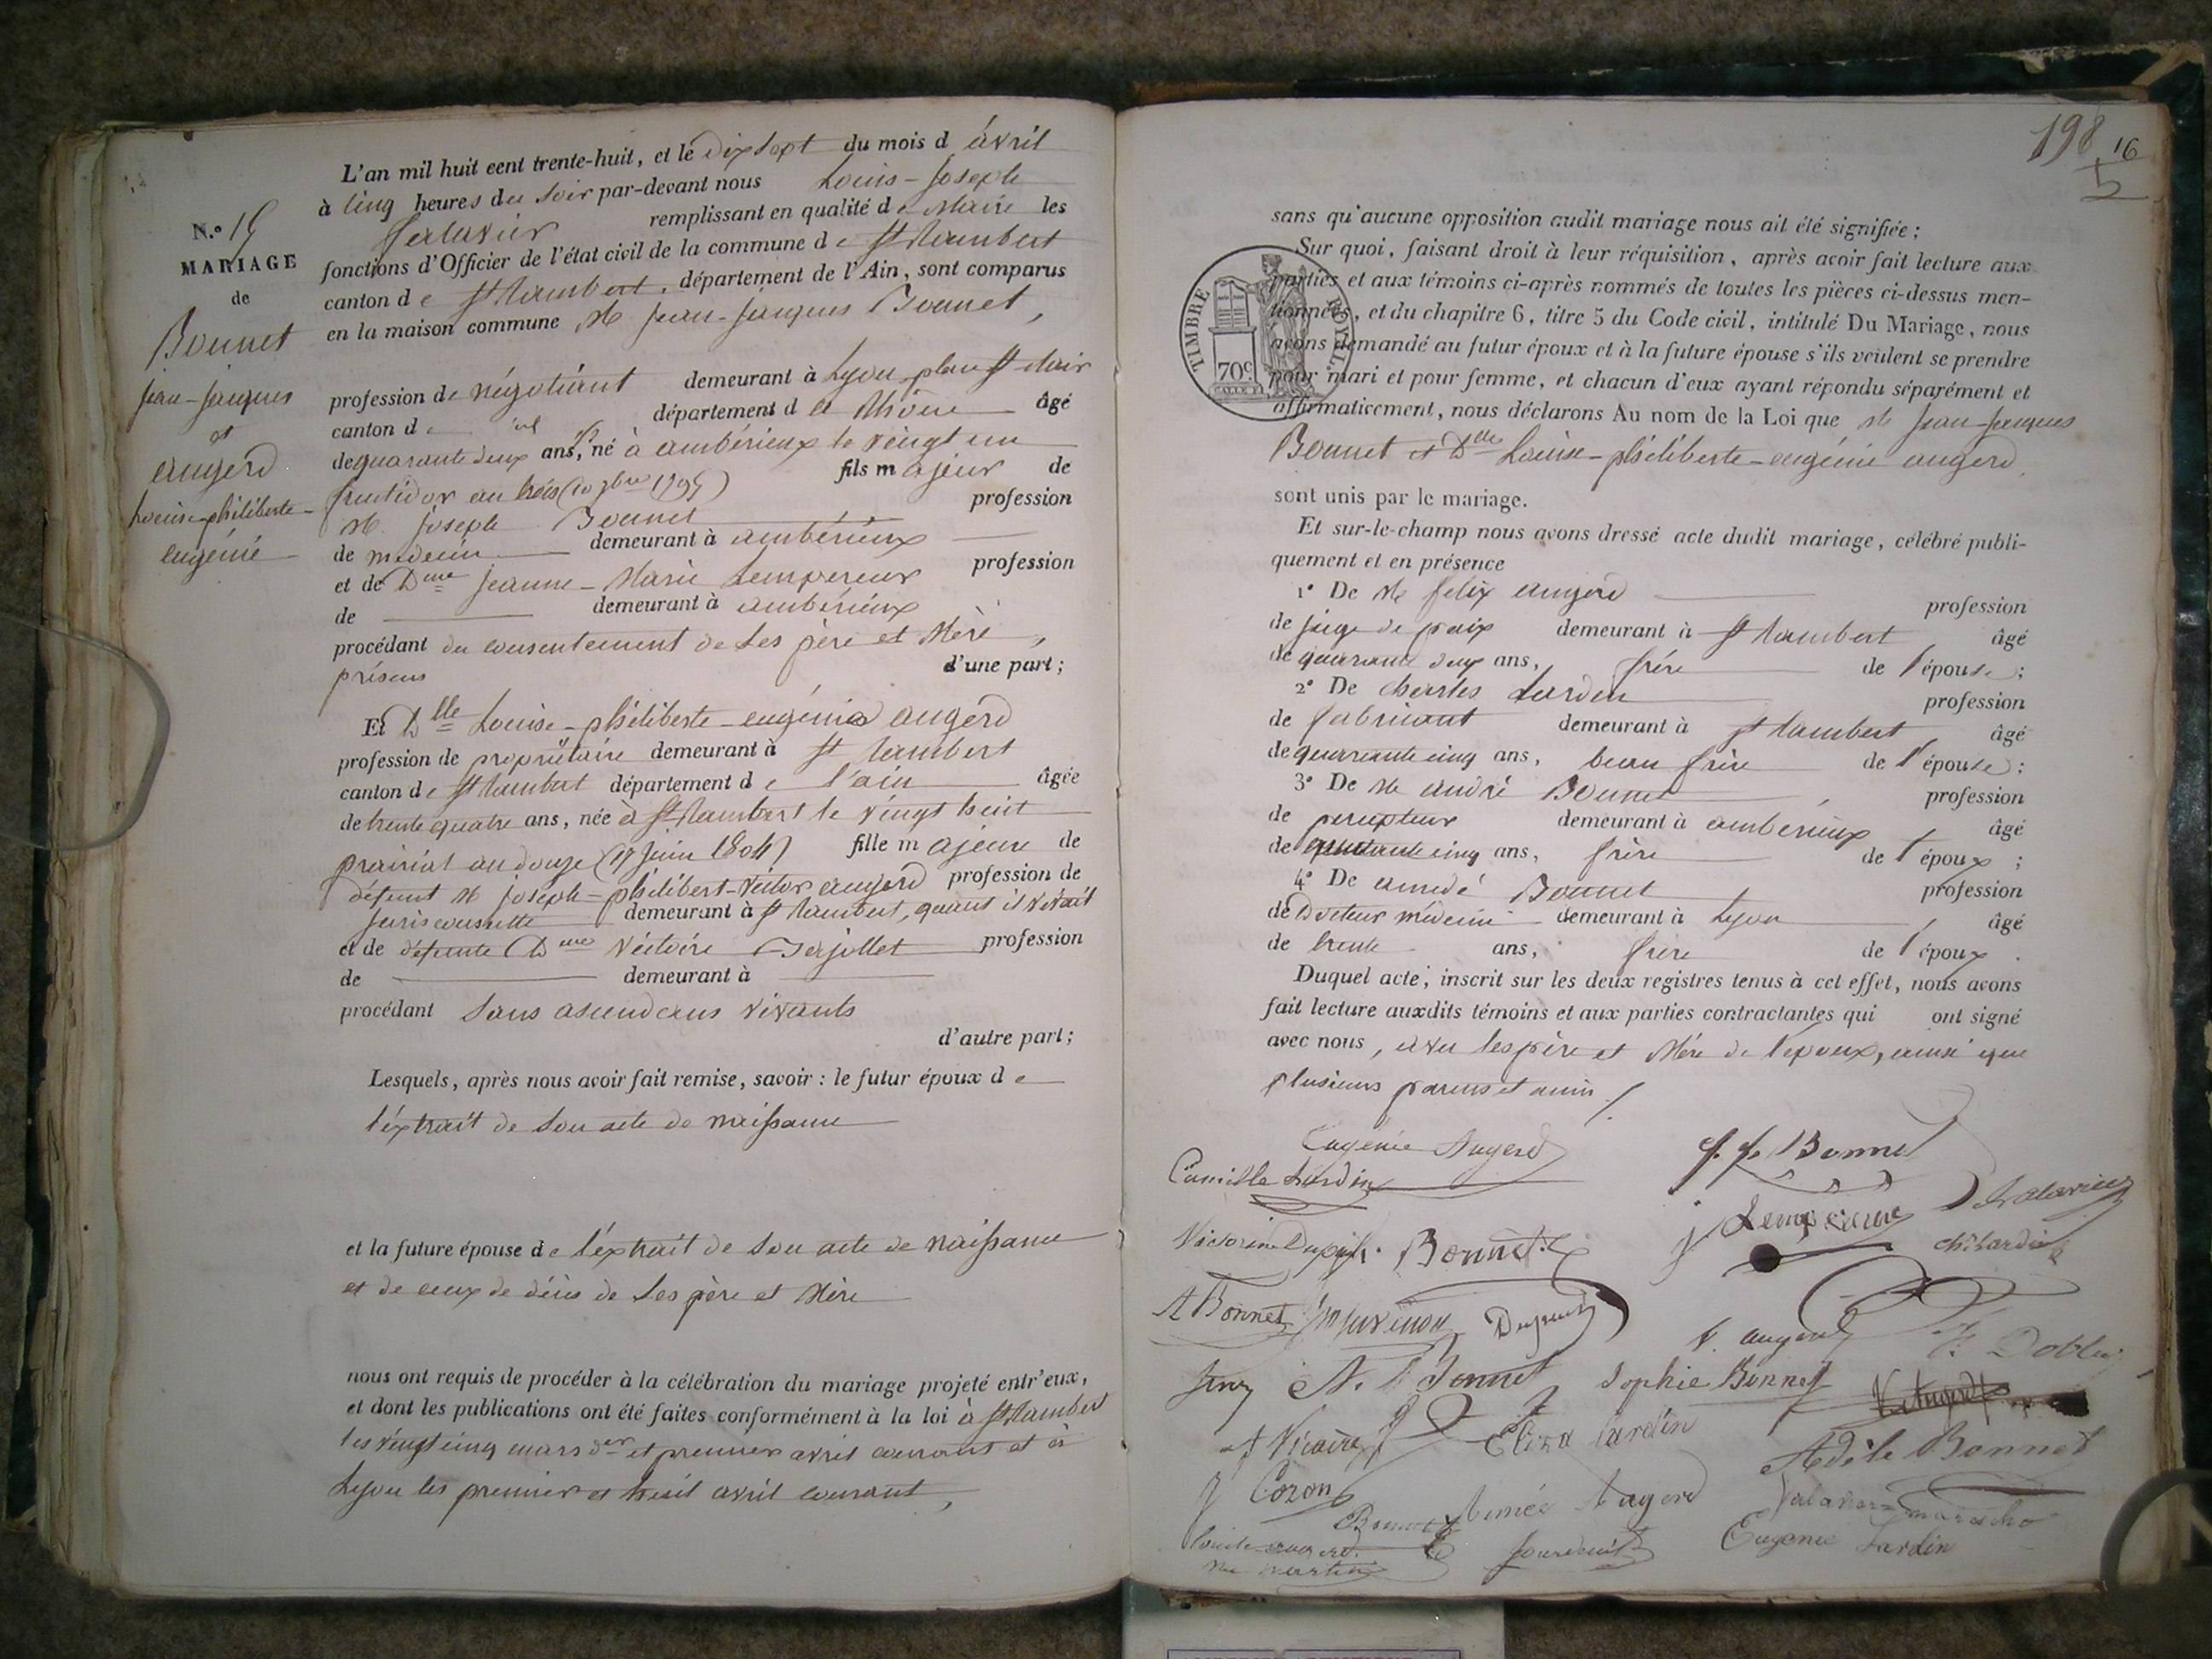 L'an mil huit cent trente-huit, et le dix sept du mois d avril
à cinq heures du soir par-devant nous Louis-Joseph
remplissant en qualité de Maire les
fonctions d'Officier de l'état civil de la commune de St Rambert
canton de St Rambert, département de l'Ain, sont comparus
en la maison commune M. Jean-Jacques Bonnet,
N.º 15
MARIAGE
de
Bonnet
Jean-Jacques
et
augerd
Louise-philiberte-
eugénie
profession de négotiant demeurant à Lyon place St Clair
canton de département d u Rhône âgé
de quarante deux ans, né à ambérieux le vingt un
fructidor an trois fils majeur de
M. Joseph Bonnet profession
de medecin demeurant à ambérieux
et de Dme Jeanne-Marie Lempereur profession
de demeurant à ambérieux
procédant du consentement de ses père et Mère,
présens d'une part;
Et Dlle Louise-philiberte-eugénie augerd
profession de propriétaire demeurant à St Rambert
canton de St Rambert département de l'ain âgée
de trente quatre ans, née à St Rambert le vingt huit
prairial an douze (17 juin 1804) fille majeure de
défunt M. joseph-philibert-victor augerd profession de
jurisconsulte demeurant à St Rambert, quant il vivait
et de défunte Dme Victoire Serjollet profession
de demeurant à
procédant sans ascendans vivants
d'autre part;
Lesquels, après nous avoir fait remise, savoir: le futur époux de
l'éxtrait de son acte de naissance
et la future épouse de l'éxtrait de son acte de naissance
et de ceux de décès de ses père et Mère
nous ont requis de procéder à la célébration du mariage projeté entr'eux,
et dont les publications ont été faites conformément à la loi à St Rambert
les vingt cinq mars der et premier avril courant et à
Lyon les premier et huit avril courant,
198 16
sans qu'aucune opposition audit mariage nous ait été signifiée;
Sur quoi, faisant droit à leur réquisition, après avoir fait lecture aux
parties et aux témoins ci-après nommés de toutes les pièces ci-dessus men-
tionnées, et du chapitre 6, titre 5 du Code civil, intitulé Du Mariage, nous
avons demandé au futur époux et à la future épouse s'ils veulent se prendre
pour mari et pour femme, et chacun d'eux ayant répondu séparément et
affirmativement, nous déclarons Au nom de la Loi que M. Jean-Jacques
TIMBRE ROYAL
70c
Bonnet et Dlle Louise-philiberte-eugénie augerd
sont unis par le mariage.
Et sur-le-champ nous avons dressé acte dudit mariage, célébré publi-
quement et en présence
1º De M. felix augerd profession
de juge de paix demeurant à St Rambert âgé
de quarante deux ans, frère de l'épouse;
2º De charles Lardin profession
de fabricant demeurant à St Rambert, âgé
de quarante cinq ans, beau frère de l'épouse;
3º De M. andré Bonnet, profession
de percepteur demeurant à ambérieux, âgé
de cinq ans, frère de l'époux;
4º De amedé Bonnet profession
de docteur médecin demeurant à Lyon, âgé
de trente ans, frère de l'époux.
Duquel acte, inscrit sur les deux registres tenus à cet effet, nous avons
fait lecture auxdits témoins et aux parties contractantes qui ont signé
avec nous, avec les père et Mère de l'époux, ainsi que
plusieurs parens et amis
Eugénie Augerd J. J. Bonnet
Camille Lardin
Bonnet
A Bonnet
f. augerd
Bonnet Sophie Bonnet
Eliza Lardin
Adèle Bonnet
Cozon
Aimée Augerd
Bonnet
Eugenie Lardin